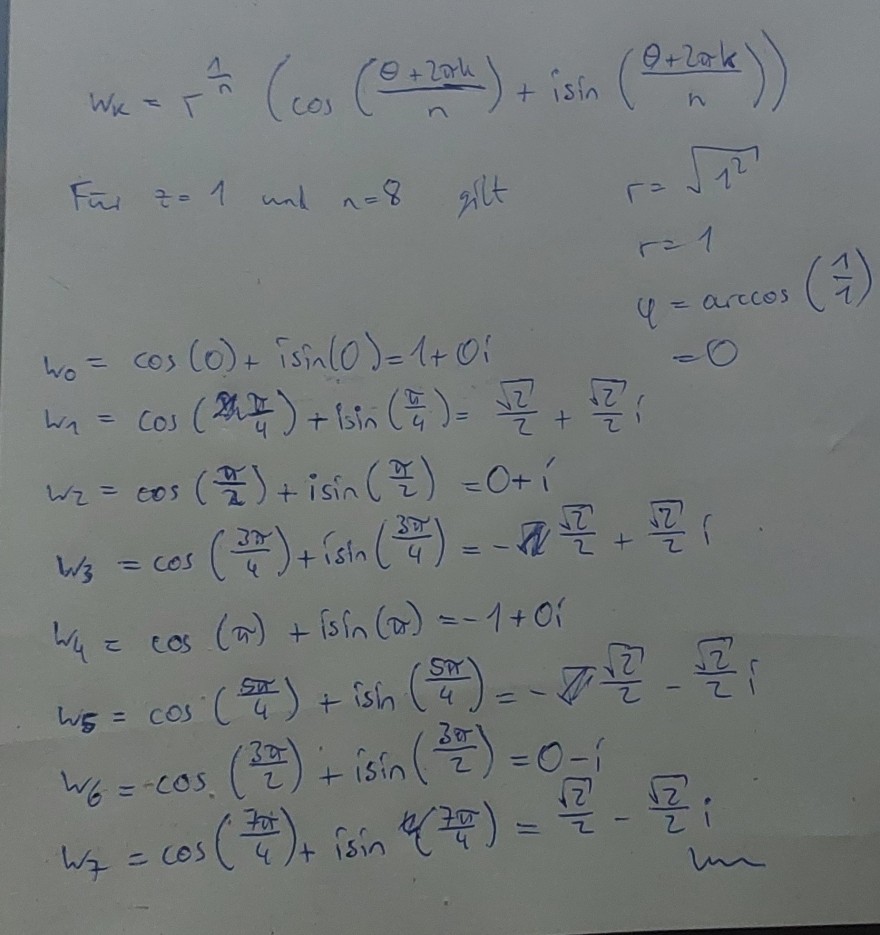 w_k = r^(1/n) (cos((θ+2πk)/n) + i sin((θ+2πk)/n))
Für z=1 und n=8 gilt
r = √(1²)
r = 1
φ = arccos(1/1)
= 0
w₀ = cos(0) + i sin(0) = 1+0i
w₁ = cos(π/4) + i sin(π/4) = √2/2 + √2/2 i
w₂ = cos(π/2) + i sin(π/2) = 0+i
w₃ = cos(3π/4) + i sin(3π/4) = -√2/2 + √2/2 i
w₄ = cos(π) + i sin(π) = -1+0i
w₅ = cos(5π/4) + i sin(5π/4) = -√2/2 - √2/2 i
w₆ = cos(3π/2) + i sin(3π/2) = 0-i
w₇ = cos(7π/4) + i sin(7π/4) = √2/2 - √2/2 i